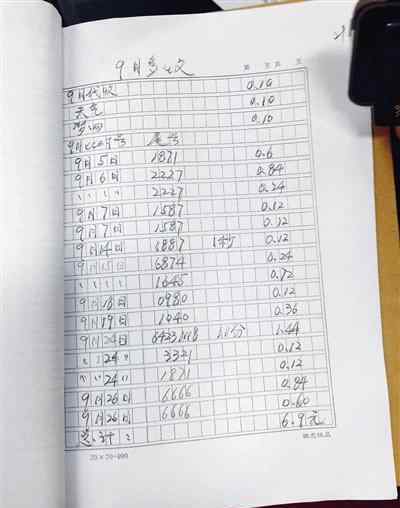 9月多收
第 页 共 页
9月代收 0.10
天气 0.10
0.10
9月 号 尾号
9月5日 1871 0.6
9月6日 2227 0.84
〃 〃 〃 〃 2227 0.24
9月7日 1587 0.12
9月7日 1587 0.12
9月14日 6887 1秒 0.12
9月15日 6874 0.24
〃 〃 〃 〃 1645 0.72
9月18日 0980 0.12
9月19日 1040 0.36
9月20日 8423 分 1.44
〃 〃 24〃 3321 0.12
〃 〃 24〃 1871 0.12
9月26日 6666 0.84
9月26日 6666 0.60
总计: 6.9元
20×20=400